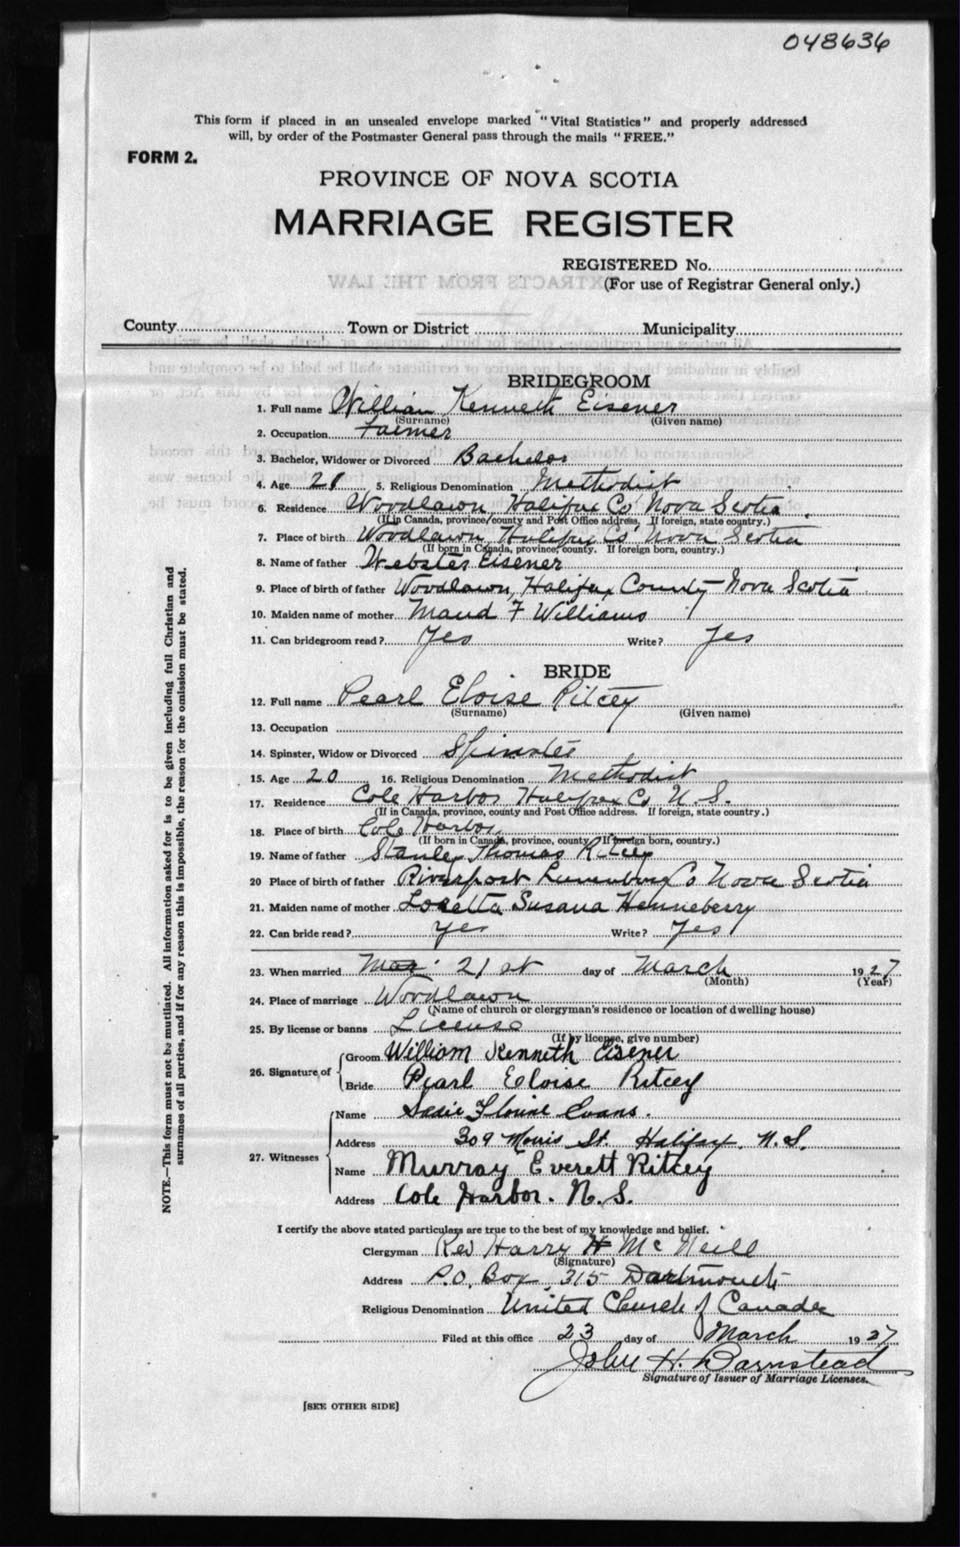 048636
This form if placed in an unsealed envelope marked "Vital Statistics" and properly addressed
will, by order of the Postmaster General pass through the mails "FREE."
FORM 2.
PROVINCE OF NOVA SCOTIA
MARRIAGE REGISTER
REGISTERED No.
(For use of Registrar General only.)
EXTRACTS FROM THE LAW
County Town or District Municipality
BRIDEGROOM
1. Full name William Kenneth Eisener
(Surname) (Given name)
2. Occupation Farmer
3. Bachelor, Widower or Divorced Bachelor
4. Age 21 5. Religious Denomination Methodist
6. Residence Woodlawn, Halifax Co Nova Scotia
(If in Canada, province, county and Post Office address. If foreign, state country.)
7. Place of birth Woodlawn Halifax Co Nova Scotia
(If born in Canada, province, county. If foreign born, country.)
8. Name of father Webster Eisener
9. Place of birth of father Woodlawn, Halifax County Nova Scotia
10. Maiden name of mother Maud F Williams
11. Can bridegroom read? Yes Write? Yes
BRIDE
12. Full name Pearl Eloise Ritcey
(Surname) (Given name)
13. Occupation
14. Spinster, Widow or Divorced Spinster
15. Age 20 16. Religious Denomination Methodist
17. Residence Cole Harbor Halifax Co N.S.
(If in Canada, province, county and Post Office address. If foreign, state country.)
18. Place of birth Cole Harbor
(If born in Canada, province, county. If foreign born, country.)
19. Name of father Stanley Thomas Ritcey
20 Place of birth of father Riverport Lunenburg Co Nova Scotia
21. Maiden name of mother Loretta Susana Henneberry
22. Can bride read? Yes Write? Yes
23. When married Mar 21st day of March 1927
(Month) (Year)
24. Place of marriage Woodlawn
(Name of church or clergyman's residence or location of dwelling house)
25. By license or banns License
(If by license, give number)
26. Signature of Groom William Kenneth Eisener
Bride Pearl Eloise Ritcey
27. Witnesses Name Sadie Evans.
Address 309 Morris St. Halifax, N.S.
Name Murray Everett Ritcey
Address Cole Harbor. N.S.
I certify the above stated particulars are true to the best of my knowledge and belief.
Clergyman Rev Harry H McNeill
(Signature)
Address P.O. Box 315 Dartmouth
Religious Denomination United Church of Canada
Filed at this office 23 day of March 1927
John H. Barnstead
Signature of Issuer of Marriage Licenses.
[SEE OTHER SIDE]
NOTE.—This form must not be mutilated. All information asked for is to be given including full Christian and
surnames of all parties, and if for any reason this is impossible, the reason for the omission must be stated.